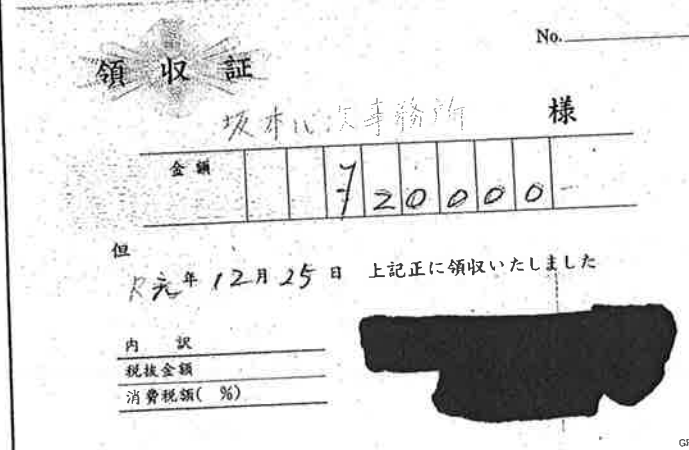 No.
領収証
坂本 事務所 様
金額 ¥20000
但
R元年12月25日 上記正に領収いたしました
内 訳
税抜金額
消費税額( %)